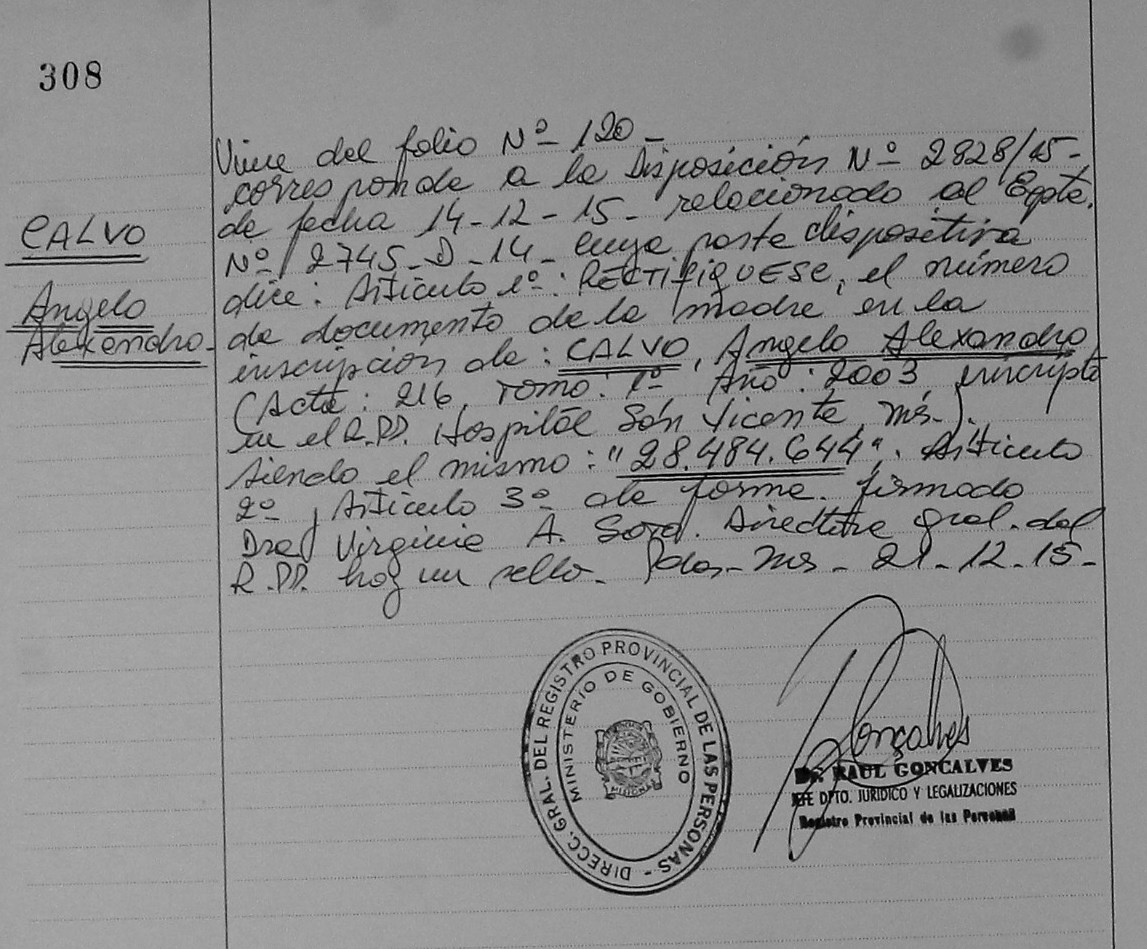 308
CALVO
Angelo
Alexandro.
Viene del folio Nº 120 -
corresponde a la Disposición Nº 2828/15 -
de fecha 14-12-15 - relacionado al Expte.
Nº 2745-D-14 cuya parte dispositiva
dice: Articulo 1º: RECTIFIQUESE, el número
de documento de la madre, en la
inscripción de: CALVO, Angelo Alexandro
(Acta: 216, Tomo: 1º Año: 2003 inscripta
en el R.PP. Hospital San Vicente, Ms.).
siendo el mismo: "28.484.644". Articulo
2º, Articulo 3º de forma. firmado
Dra Virginia A. Directora Gral. del
R.PP. hay un sello - Pdas - Ms - 21-12-15 -
DIRECC. GRAL. DEL REGISTRO PROVINCIAL DE LAS PERSONAS -
MINISTERIO DE GOBIERNO
MISIONES
Goncalves
Dr. RAUL GONCALVES
JEFE DPTO. JURIDICO Y LEGALIZACIONES
Registro Provincial de las Personas